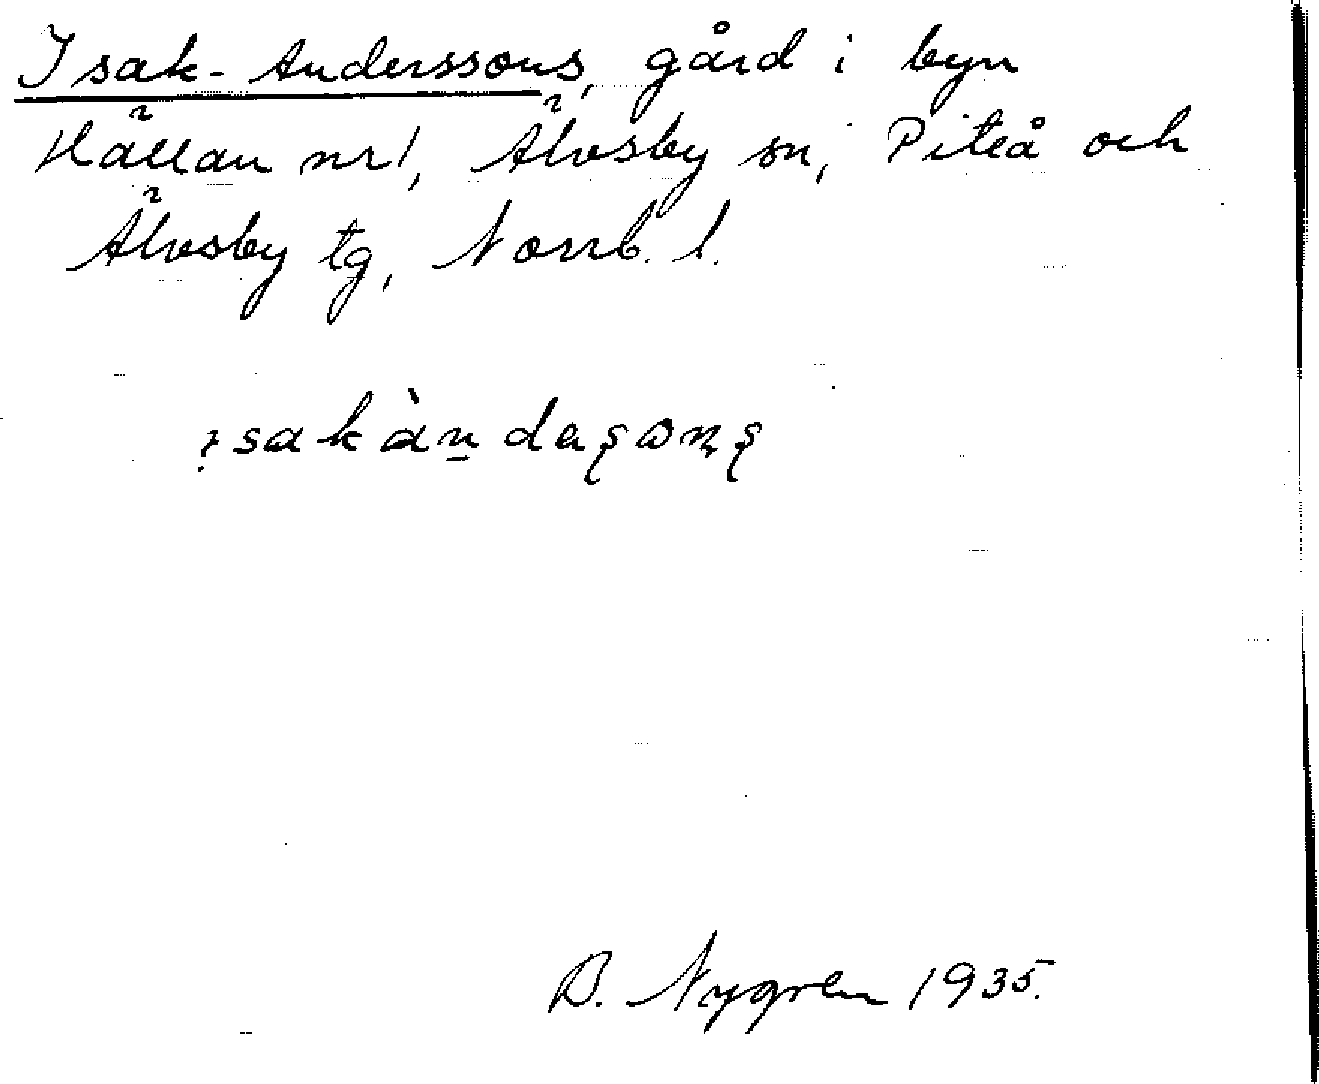 Isak-Anderssons, gård i byn
Hällan nr 1, Älvsby sn, Piteå och
Älvsby tg, Norrb. l.
ısakàn̲daʂonʂ
B. Nygren 1935.